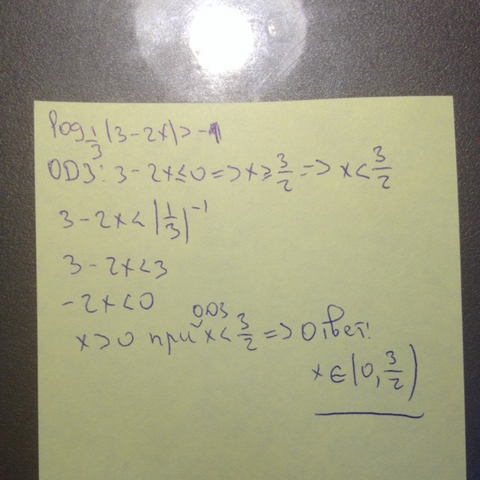 log_{1/3}(3-2x)>-1
ОДЗ: 3-2x≤0 => x≥3/2 => x<3/2
3-2x<(1/3)^{-1}
3-2x<3
-2x<0
x>0 при ОДЗ x<3/2 => Ответ:
x∈(0, 3/2)